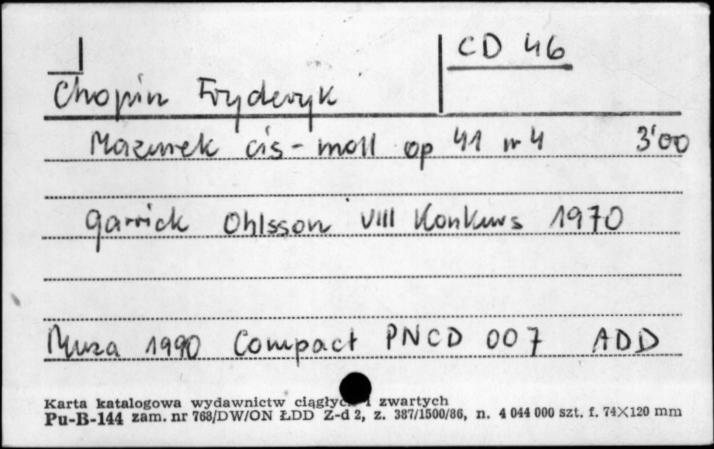 CD 46
Chopin Fryderyk
Mazurek cis-moll op 41 nr 4 3'00
Garrick Ohlsson VIII Konkurs 1970
Muza 1990 Compact PNCD 007 ADD
Karta katalogowa wydawnictw ciągłych i zwartych
Pu-B-144 zam. nr 768/DW/ON ŁDD Z-d 2, z. 387/1500/86, n. 4 044 000 szt. f. 74×120 mm